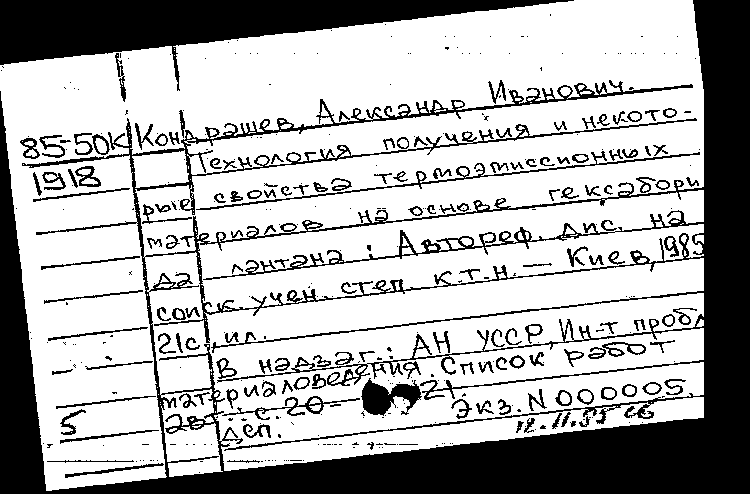 85-50К Кондрашев, Александр Иванович.
1918 Технология получения и некото-
рые свойства термоэмиссионных
материалов на основе гексабори
да лантана : Автореф. дис. на
соиск. учен. степ. к.т.н. — Киев, 1985
21с., ил.
В надзаг.: АН УССР, Ин-т пробл
материаловедения. Список работ
авт.: с. 20-21.
5 Экз. N 000005.
Дсп.